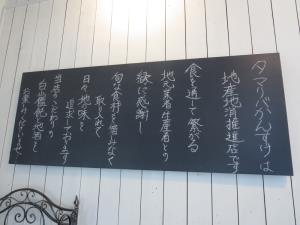 タマリバかんすけは
地産地消推進店です
食を通して繋がる
地元業者生産者との
縁に感謝し
旬な食材を惜みなく
取り入れて
日々地味と
追求しております
当店のこだわりの
自然肥地酒と
お楽しみくださいませ